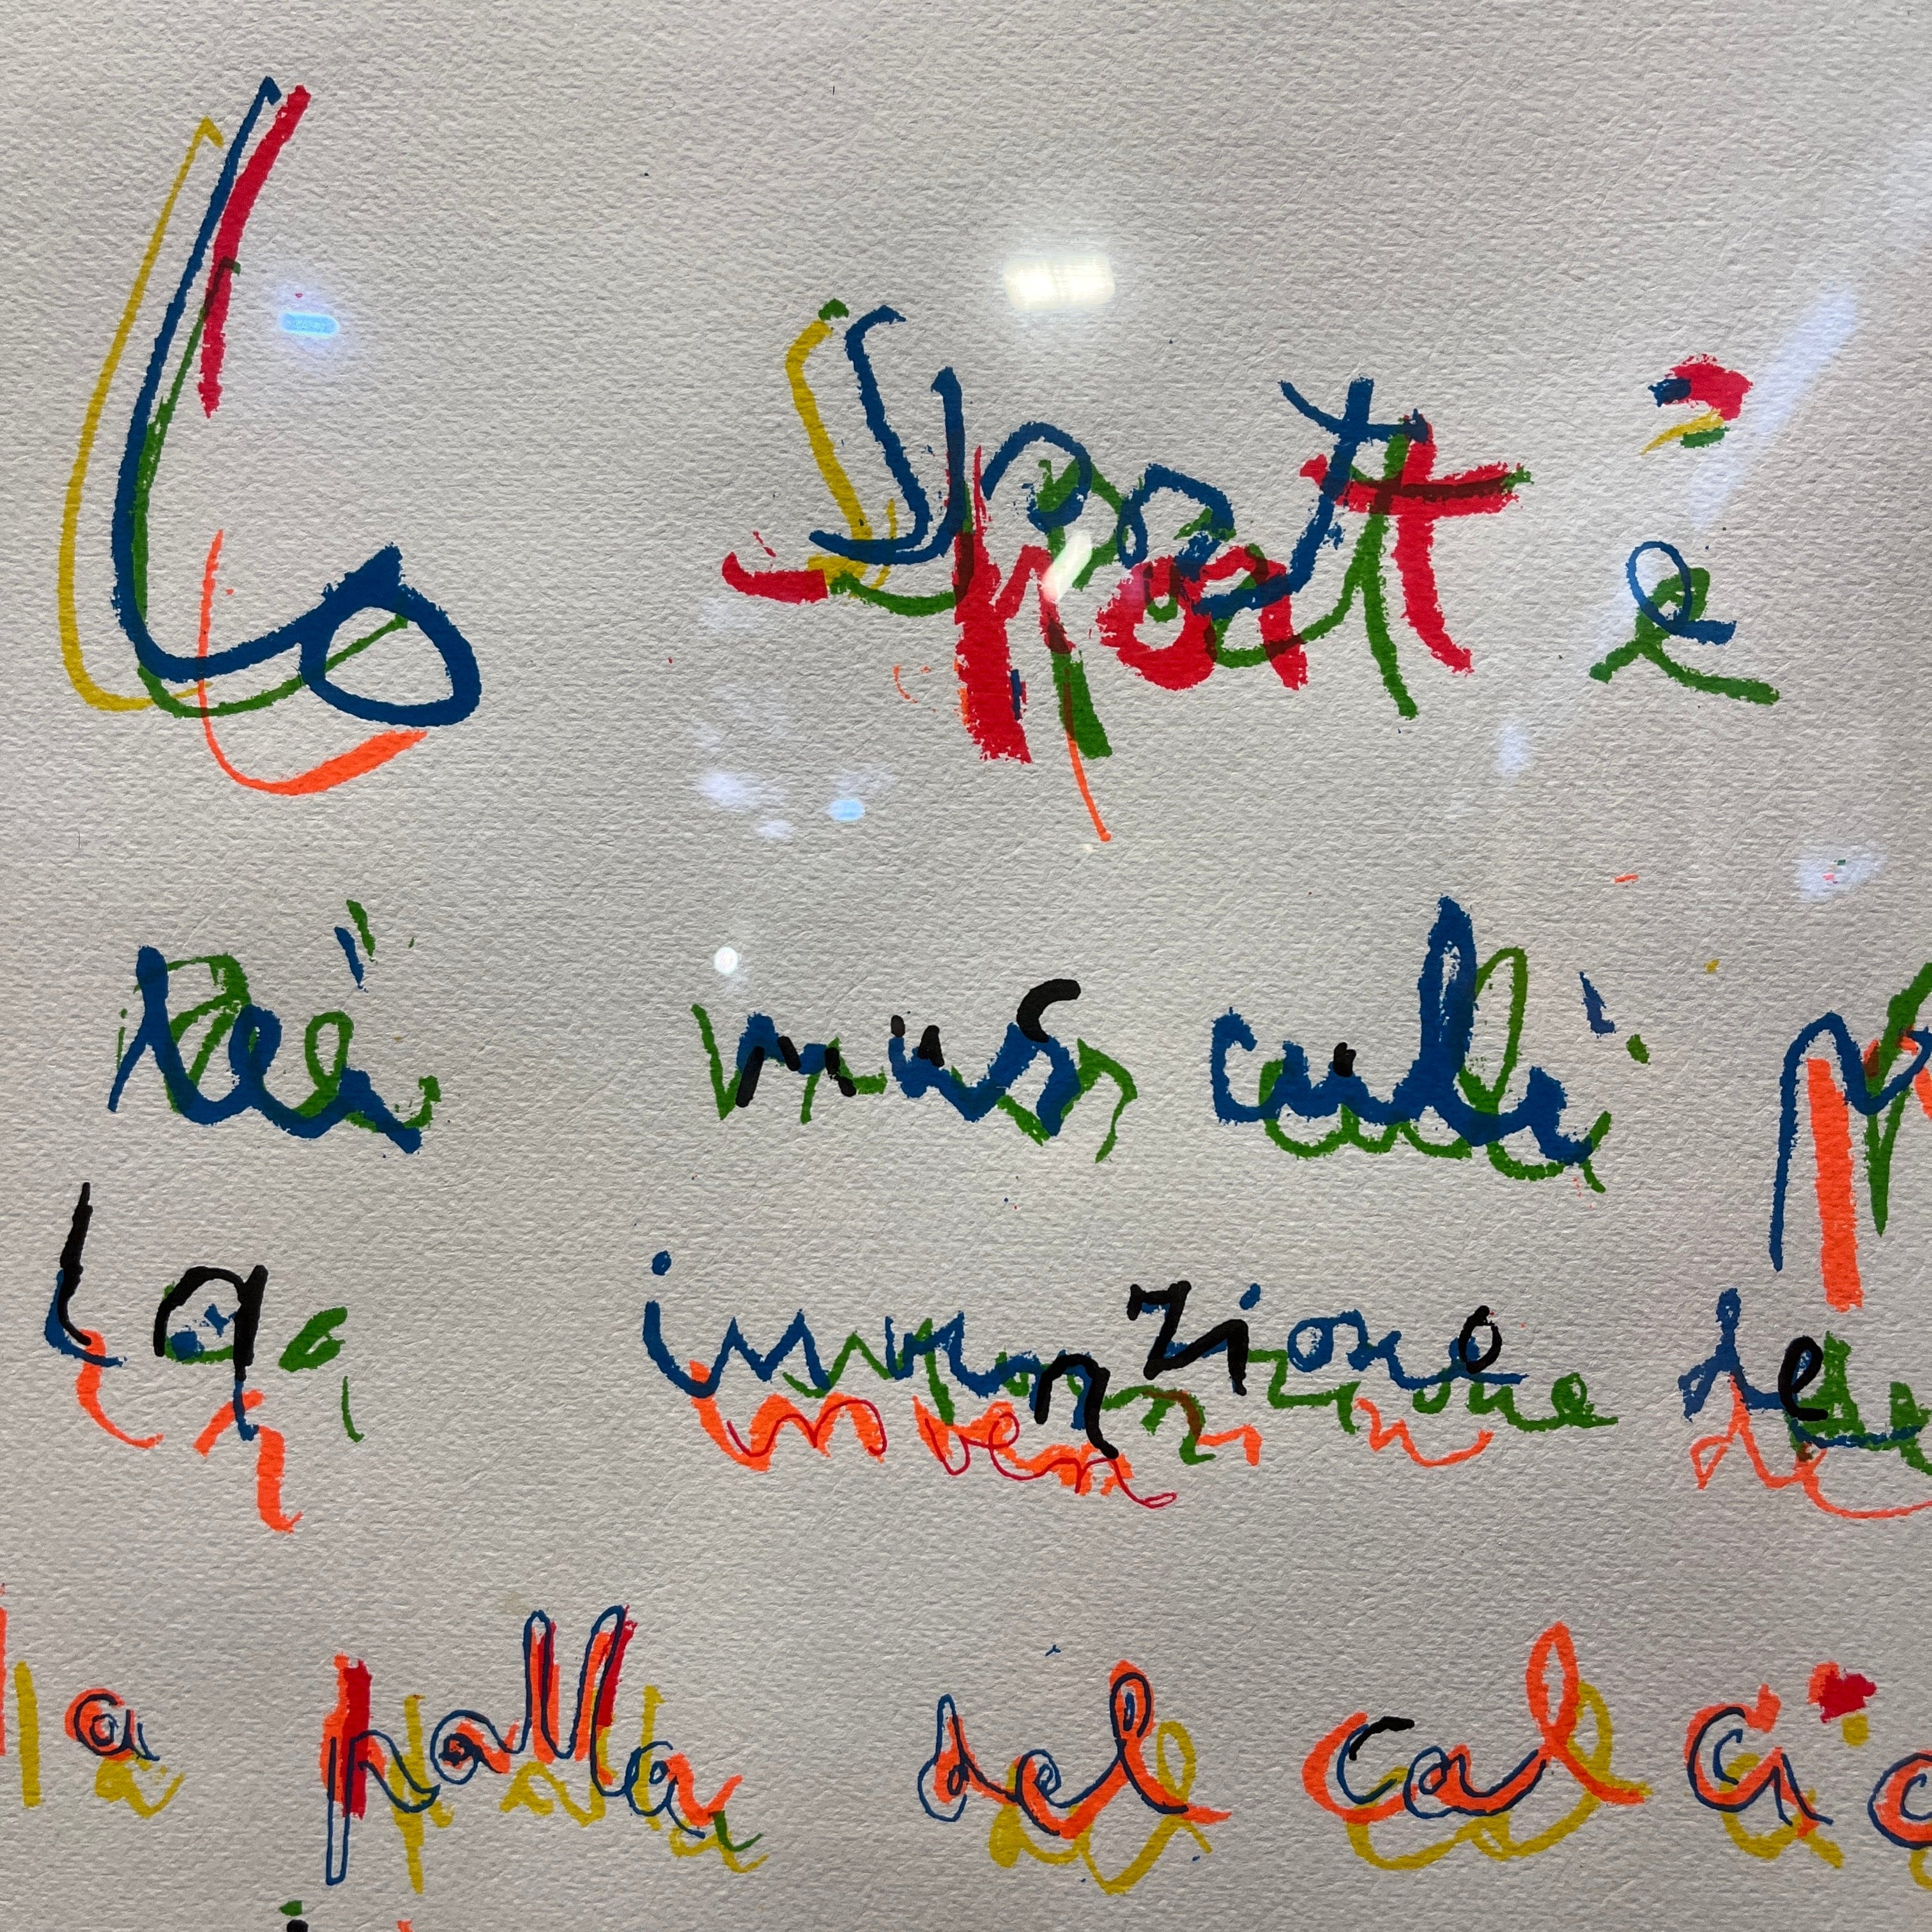 Lo Sport è
dei muscoli
La invenzione de
la palla del calcio